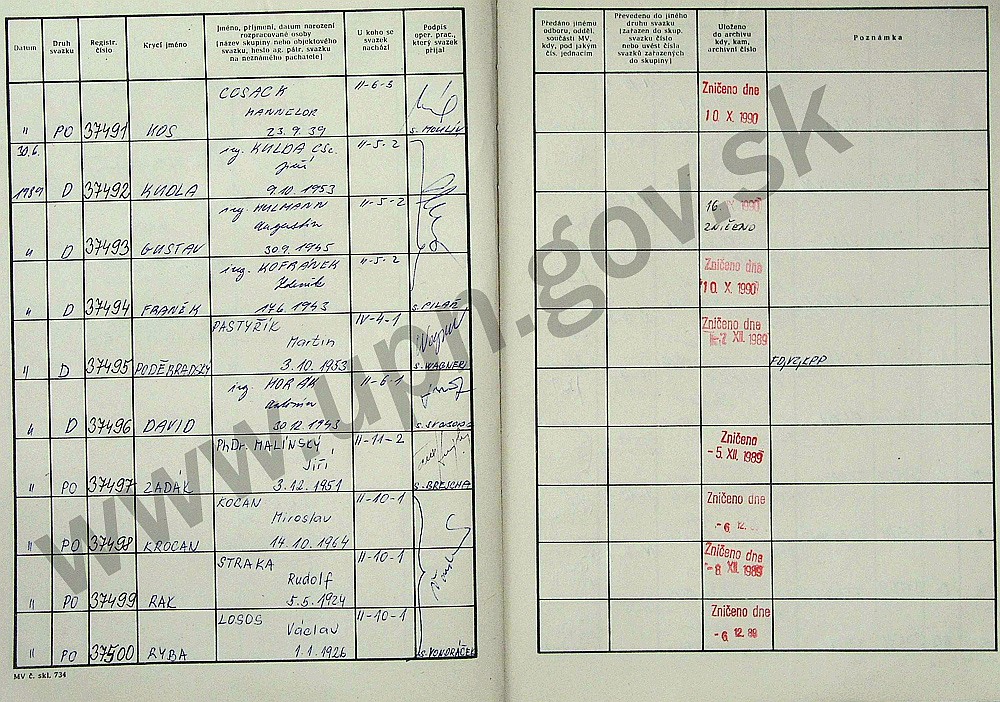 Datum
Druh svazku
Registr. číslo
Krycí jméno
Jméno, příjmení, datum narození
rozpracované osoby
(název skupiny nebo objektového
svazku, heslo ag. pátr. svazku
na neznámého pachatele)
U koho se
svazek
nachází
Podpis
oper. prac.,
který svazek
přijal
Předáno jinému
odboru, odděl.
součásti MV,
kdy, pod jakým
čís. jednacím
Převedeno do jiného
druhu svazku
(zařazen do skup.
svazku číslo
nebo uvést čísla
svazků zařazených
do skupiny)
Uloženo
do archivu
kdy, kam,
archivní číslo
Poznámka
COSACK II-6-5
HANNELOR
" PO 37491 KOS 23.9.39
Zničeno dne
10 X. 1990
30.6. ing. KULDA CSc. II-5-2
Jiří
1989 D 37492 KUDLA 9.10.1953
ing. HULMANN II-5-2
Augustin
" D 37493 GUSTAV 30.9.1945
16. 1990
ZNIČENO
ing. KOFRÁNEK II-5-2
Zdeněk
" D 37494 FRANĚK 17.6.1943 s. PILAŘ
Zničeno dne
10 X. 1990
PASTYŘÍK IV-4-1
Martin
" D 37495 PODĚBRADSKÝ 3.10.1953 s. WAGNER
Zničeno dne
XII. 1989
ing. HORÁK II-6-1
Antonín
" D 37496 DAVID 30.12.1943 s. SVOBODA
PhDr. MALÍNSKÝ II-11-2
Jiří
" PO 37497 ZADÁK 3.12.1951 s. BRESCHA
Zničeno
-5. XII. 1989
KOCAN II-10-1
Miroslav
" PO 37498 KROCAN 14.10.1964
Zničeno dne
-6. 12.
STRAKA II-10-1
Rudolf
" PO 37499 RAK 5.5.1924
Zničeno dne
-8. XII. 1989
LOSOS II-10-1
Václav
" PO 37500 RYBA 1.1.1926 s. VONDRÁČEK
Zničeno dne
-6. 12. 89
MV č. skl. 734
www.upn.gov.sk